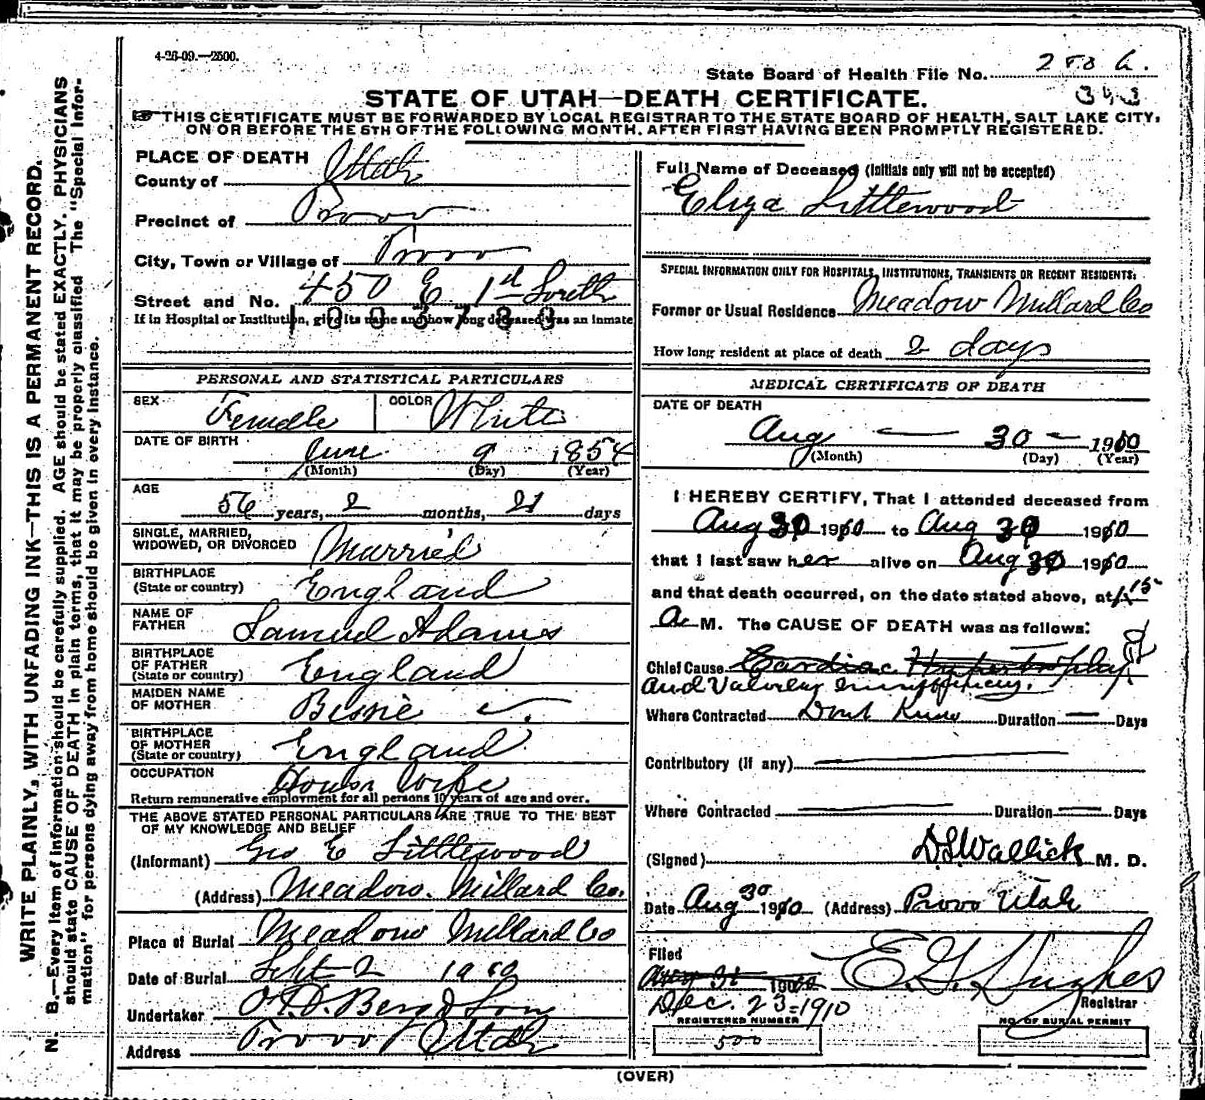 4-26-09.—2500.
State Board of Health File No.
STATE OF UTAH—DEATH CERTIFICATE.
THIS CERTIFICATE MUST BE FORWARDED BY LOCAL REGISTRAR TO THE STATE BOARD OF HEALTH, SALT LAKE CITY,
ON OR BEFORE THE 5TH OF THE FOLLOWING MONTH, AFTER FIRST HAVING BEEN PROMPTLY REGISTERED.
WRITE PLAINLY, WITH UNFADING INK—THIS IS A PERMANENT RECORD.
N. B.—Every item of information should be carefully supplied. AGE should be stated EXACTLY. PHYSICIANS
should state CAUSE OF DEATH in plain terms, that it may be properly classified The "Special Infor-
mation" for persons dying away from home should be given in every instance.
PLACE OF DEATH
County of Utah
Precinct of Provo
City, Town or Village of Provo
Street and No. 450 E 1st South
If in Hospital or Institution, give its name and how long deceased was an inmate
1003780
PERSONAL AND STATISTICAL PARTICULARS
SEX Female COLOR White
DATE OF BIRTH
June 9 1854
(Month) (Day) (Year)
AGE
56 years, 2 months, 21 days
SINGLE, MARRIED,
WIDOWED, OR DIVORCED Married
BIRTHPLACE
(State or country) England
NAME OF
FATHER Samuel Adams
BIRTHPLACE
OF FATHER
(State or country) England
MAIDEN NAME
OF MOTHER Bessie
BIRTHPLACE
OF MOTHER
(State or country) England
OCCUPATION House Wife
Return remunerative employment for all persons 10 years of age and over.
THE ABOVE STATED PERSONAL PARTICULARS ARE TRUE TO THE BEST
OF MY KNOWLEDGE AND BELIEF
(Informant) Geo E Littlewood
(Address) Meadow. Millard Co.
Place of Burial Meadow Millard Co
Date of Burial Sept 2 1910
Undertaker O.H. Berg & Son
Address Provo Utah
Full Name of Deceased (Initials only will not be accepted)
Eliza Littlewood
SPECIAL INFORMATION ONLY FOR HOSPITALS, INSTITUTIONS, TRANSIENTS OR RECENT RESIDENTS:
Former or Usual Residence Meadow Millard Co
How long resident at place of death 2 days
MEDICAL CERTIFICATE OF DEATH
DATE OF DEATH
Aug — 30 — 1910
(Month) (Day) (Year)
I HEREBY CERTIFY, That I attended deceased from
Aug 30 1910 to Aug 30 1910
that I last saw her alive on Aug 30 1910
and that death occurred, on the date stated above, at
A M. The CAUSE OF DEATH was as follows:
Chief Cause Cardiac Hypertrophy
and Valvular insufficiency.
Where Contracted Dont Know Duration — Days
Contributory (If any)
Where Contracted Duration — Days
(Signed) M. D.
Date Aug 30 1910 (Address) Provo Utah
Filed
Aug 31 1910 E. G. Hughes
Dec. 23-1910 Registrar
REGISTERED NUMBER NO. OF BURIAL PERMIT
500
(OVER)